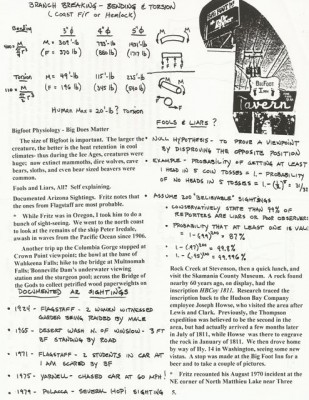 BRANCH BREAKING - BENDING & TORSION
(COAST FIR or HEMLOCK)
Bending
3"φ
4"φ
5"φ
M =
309'·lb
(F = 370 lb)
Torsion
M = 49'·lb
115'·lb
225'·lb
(F = 196 lb)
HUMAN MAX ≈ 20'·lb? TORSION
BIGFOOT
Tavern
FOOLS & LIARS?
Bigfoot Physiology - Big Does Matter
The size of Bigfoot is important. The larger the
creature, the better is the heat retention in cold
climates- thus during the Ice Ages, creatures were
huge; now extinct mammoths, dire wolves, cave
bears, sloths, and even bear sized beavers were
common.
Fools and Liars, All? Self explaining.
Documented Arizona Sightings. Fritz notes that
the ones from Flagstaff are most probable.
* While Fritz was in Oregon, I took him to do a
bunch of sight-seeing. We went to the north coast
to look at the remains of the ship Peter Iredale,
awash in waves from the Pacific Ocean since 1906.
Another trip up the Columbia Gorge stopped at
Crown Point viewpoint; the bowl at the base of
Wahkeena Falls; hike to the bridge at Multnomah
Falls; Bonneville Dam's underwater viewing
station and the sturgeon pool; across the Bridge of
the Gods to collect petrified wood paperweights on
DOCUMENTED AZ SIGHTINGS
• 1924 - FLAGSTAFF - 2 WOMEN WITNESSED
GARDEN BEING RAIDED BY MALE
• 1965 - DESERT WASH N. OF WINSLOW - 3 FT
BF STANDING BY ROAD
• 1971 - FLAGSTAFF - 2 STUDENTS IN CAR AT
1 AM SCARED BY BF
• 1975 - YARNELL - CHASED CAR AT 60 MPH!
• 1979 - POLACCA - SEVERAL HOPI SIGHTING
• NULL HYPOTHESIS - TO PROVE A VIEWPOINT
BY DISPROVING THE OPPOSITE POSITION
• EXAMPLE - PROBABILITY OF GETTING AT LEAST
1 HEAD IN 5 COIN TOSSES = 1 - PROBABILITY
OF NO HEADS IN 5 TOSSES = 1 - (½)⁵ = 31/32
• ASSUME 200 "BELIEVABLE" SIGHTINGS
• CONSERVATIVELY STATE THAT 99% OF
REPORTERS ARE LIARS OR POOR OBSERVERS
• PROBABILITY THAT AT LEAST ONE IS VALID
= 1 - (.99)²⁰⁰ = 87%
• 1 - (.97)²⁰⁰ = 99.8%
• 1 - (.95)²⁰⁰ = 99.996%
Rock Creek at Stevenson, then a quick lunch, and
visit the Skamania County Museum. A rock found
nearby 60 years ago, on display, had the
inscription HBCo 1811. Research traced the
inscription back to the Hudson Bay Company
employee Joseph Howse, who visited the area after
Lewis and Clark. Previously, the Thompson
expedition was believed to be the second in the
area, but had actually arrived a few months later
in July of 1811, while Howse was there to engrave
the rock in January of 1811. We then drove home
by way of Hy. 14 in Washington, seeing some new
vistas. A stop was made at the Big Foot Inn for a
beer and to take a couple of pictures.
* Fritz recounted his August 1970 incident at the
NE corner of North Matthieu Lake near Three
5.